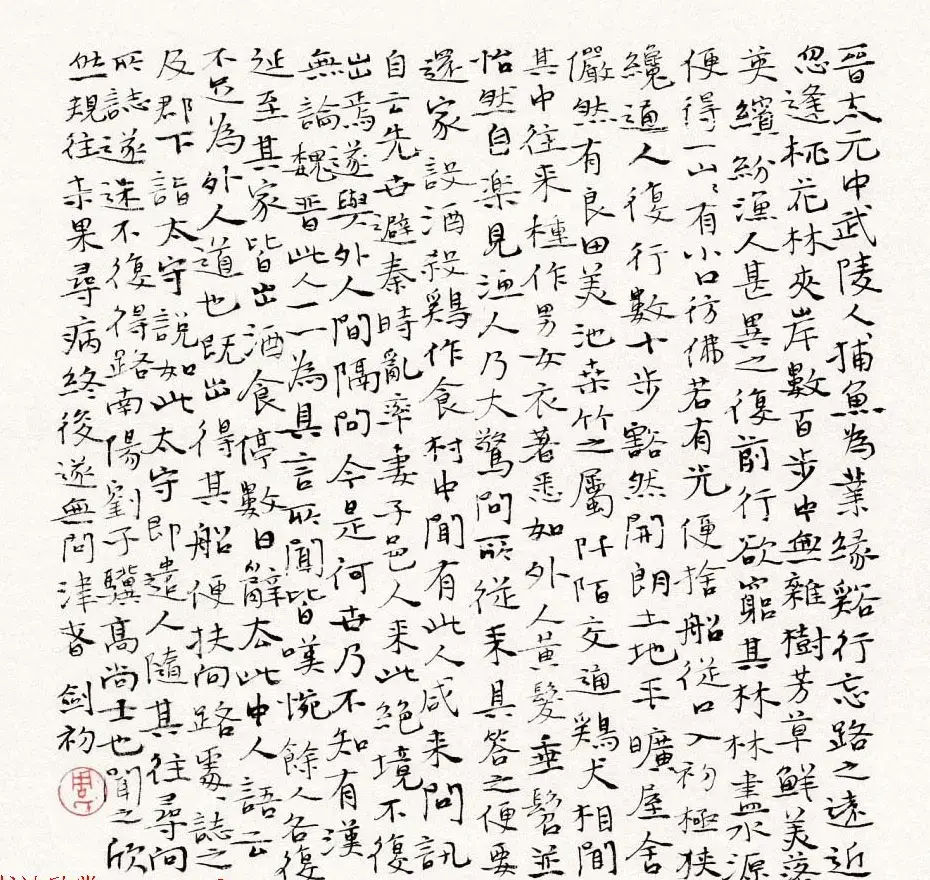 晉太元中武陵人捕魚為業緣谿行忘路之遠近
忽逢桃花林夾岸數百步中無雜樹芳草鮮美落
英繽紛漁人甚異之復前行欲窮其林林盡水源
便得一山〻有小口彷佛若有光便捨船從口入初極狹
纔通人復行數十步豁然開朗土地平曠屋舍
儼然有良田美池桑竹之屬阡陌交通鷄犬相聞
其中往来種作男女衣著悉如外人黃髮垂髫並
怡然自樂見漁人乃大驚問所從来具答之便要
還家設酒殺鷄作食村中聞有此人咸来問訊
自云先世避秦時亂率妻子邑人来此絕境不復
出焉遂與外人間隔問今是何世乃不知有漢
無論魏晉此人一一為具言所聞皆嘆惋餘人各復
延至其家皆出酒食停數日辭去此中人語云
不足為外人道也既出得其船便扶向路處〻誌之
及郡下詣太守說如此太守即遣人隨其往尋向
所誌遂迷不復得路南陽劉子驥高尚士也聞之欣
然規往未果尋病終後遂無問津者 劍初